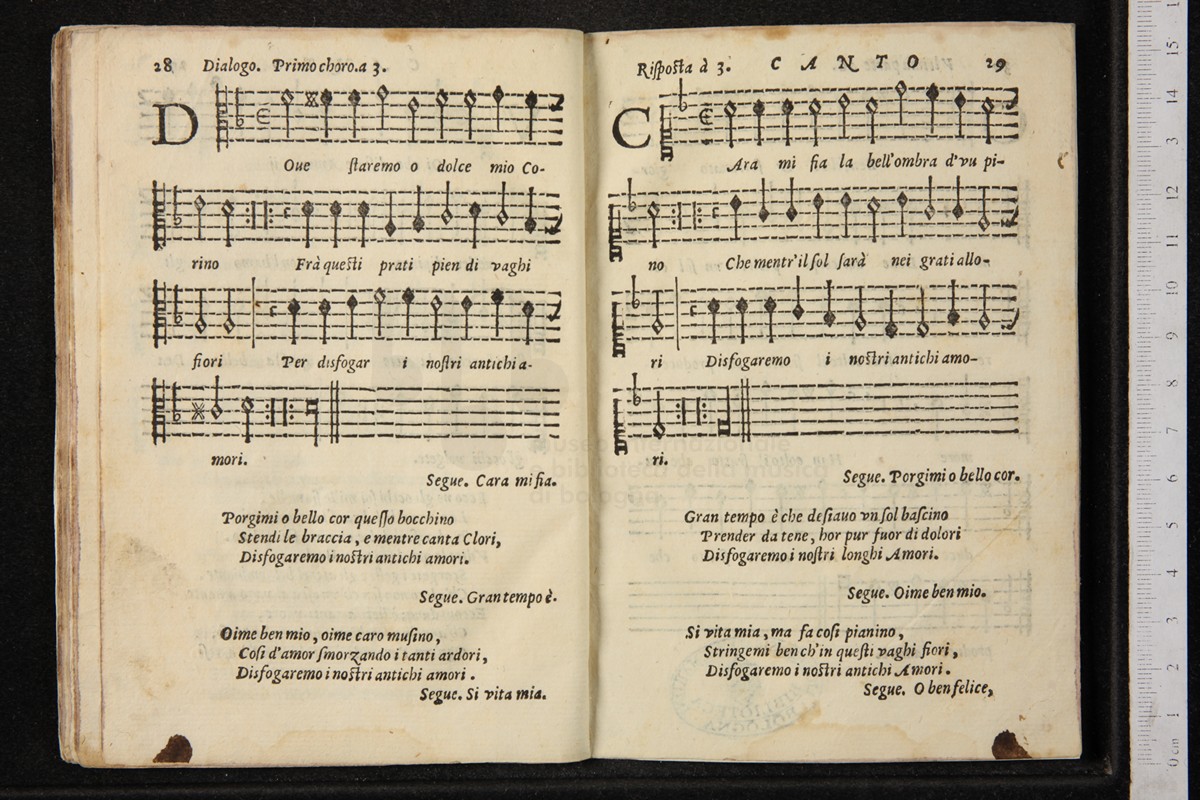 28 Dialogo. Primo choro. a 3.
D
Oue ſtaremo o dolce mio Co-
rino Frà queſti prati pien di vaghi
fiori Per disfogar i noſtri antichi a-
mori.
Segue. Cara mi ſia.
Porgimi o bello cor queſſo bocchino
Stendi le braccia, e mentre canta Clori,
Disfogaremo i noſtri antichi amori.
Segue. Gran tempo è.
Oime ben mio, oime caro muſino,
Coſi d'amor ſmorzando i tanti ardori,
Disfogaremo i noſtri antichi amori.
Segue. Si vita mia.
Riſpoſta à 3. CANTO 29
C
Ara mi ſia la bell'ombra d'vu pi-
no Che mentr'il ſol ſarà nei grati allo-
ri Disfogaremo i noſtri antichi amo-
ri.
Segue. Porgimi o bello cor.
Gran tempo è che deſiauo vn ſol baſcino
Prender da tene, hor pur fuor di dolori
Disfogaremo i noſtri longhi Amori.
Segue. Oime ben mio.
Si vita mia, ma fa coſi pianino,
Stringemi ben ch'in queſti vaghi fiori,
Disfogaremo i noſtri antichi Amori.
Segue. O ben felice,
museo internazionale
e biblioteca della musica
di bologna
0 cm 1 2 3 4 5 6 7 8 9 10 11 12 13 14 15